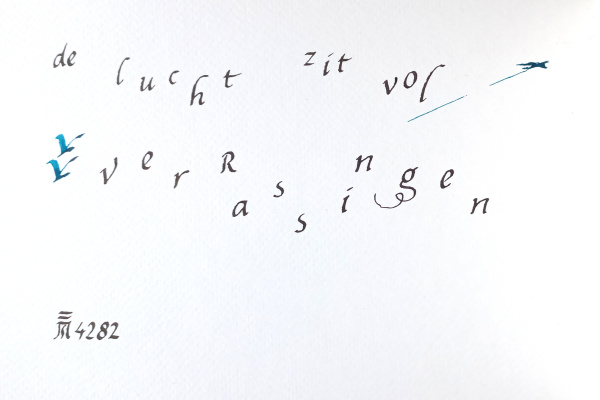 de lucht zit vol
verRassingen
4282